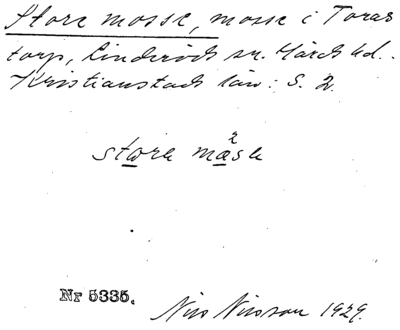 Store mosse, mosse i Toras
torp, Linderöds sn. Gärds hd.
Kristianstads län: S. 2.
2
store mase
Nr 5335.
Nils Nilsson 1929.